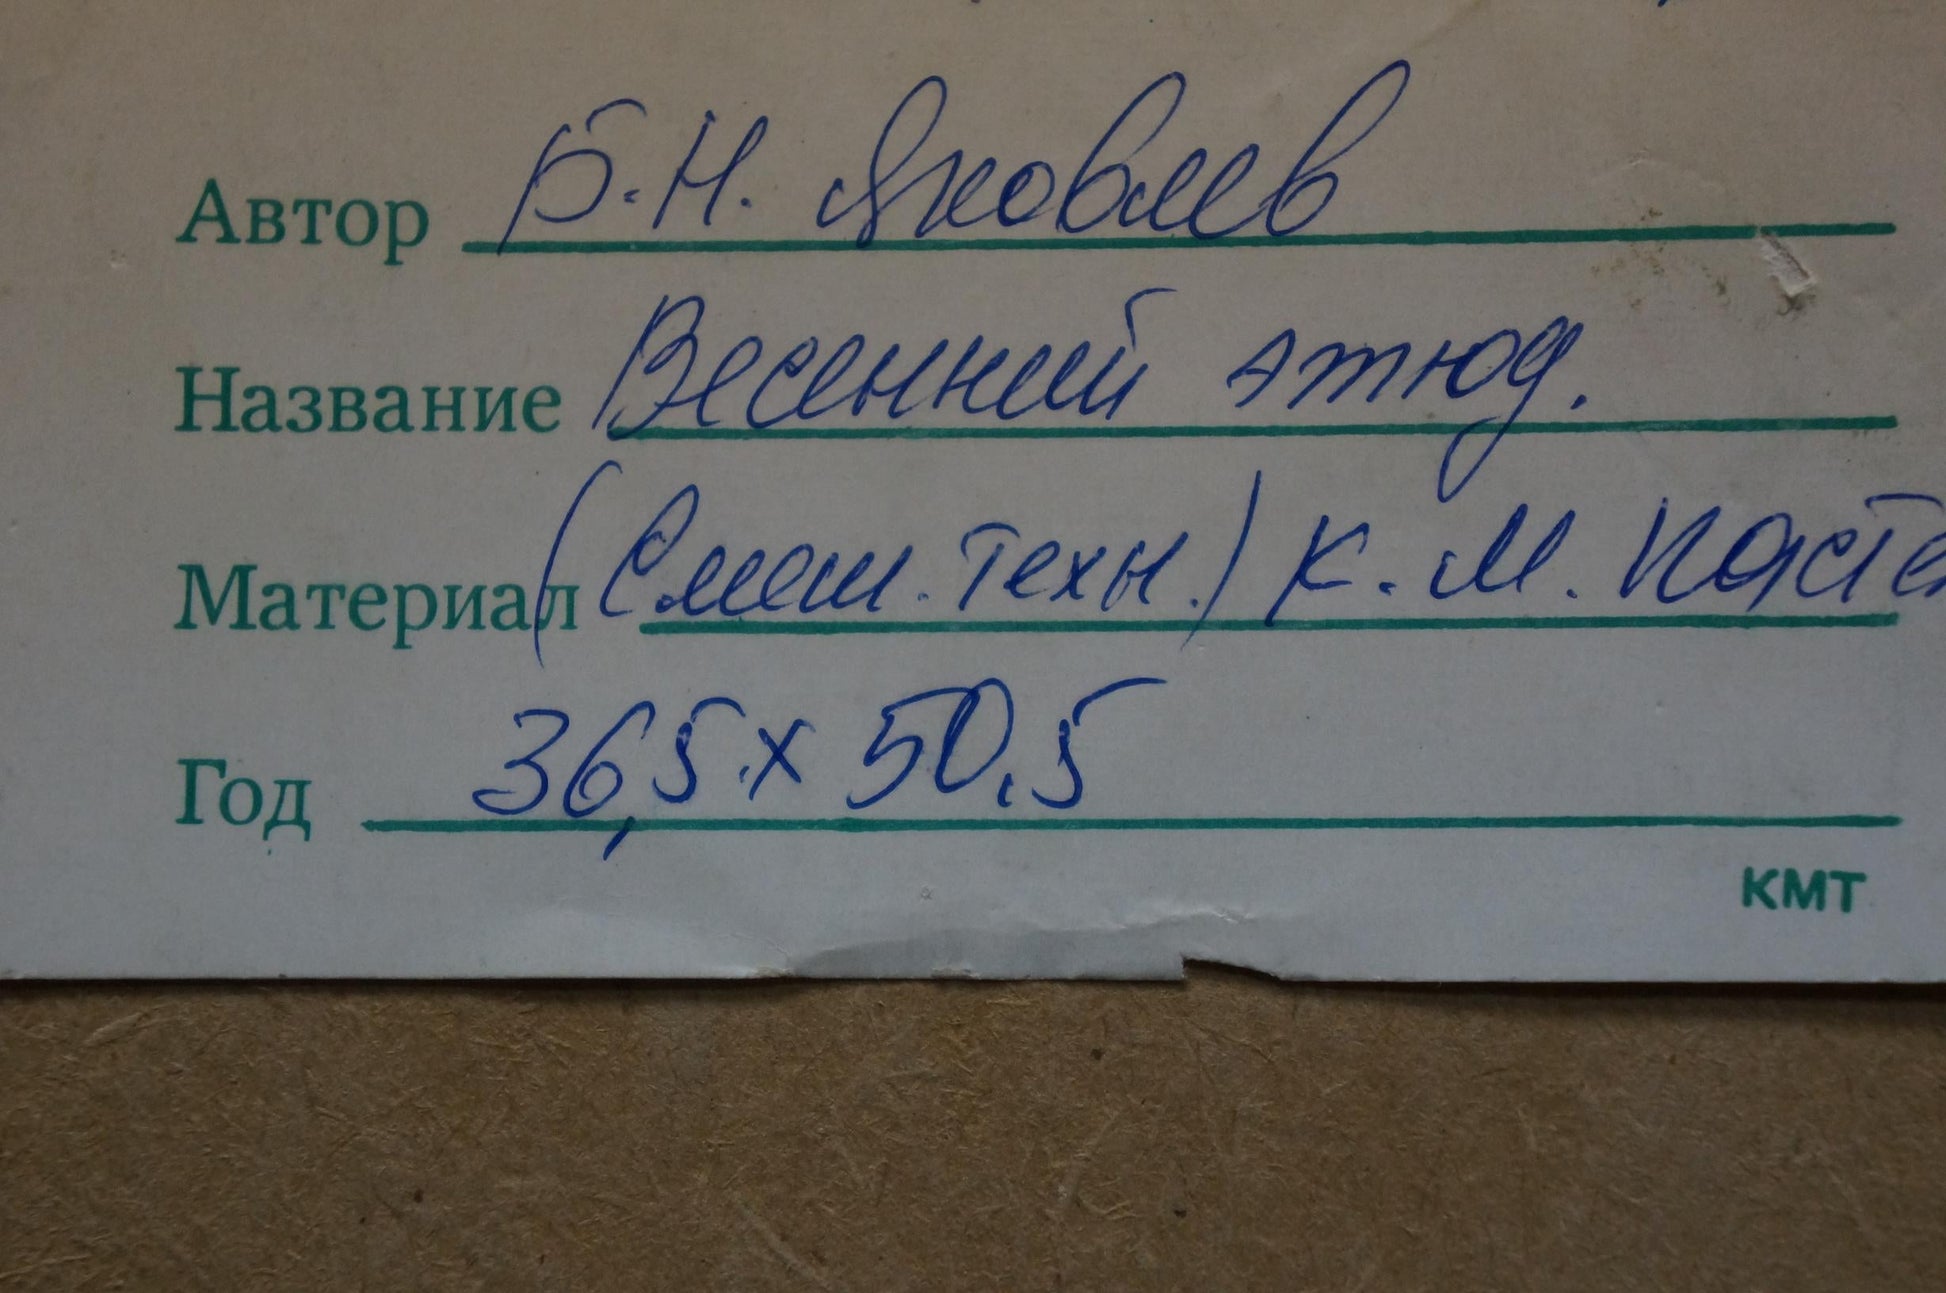 Автор Б.Н. Яковлев
Название Весенний этюд.
Материал (Смеш. техн.) К. М. пасте
Год 36,5 х 50,5
КМТ